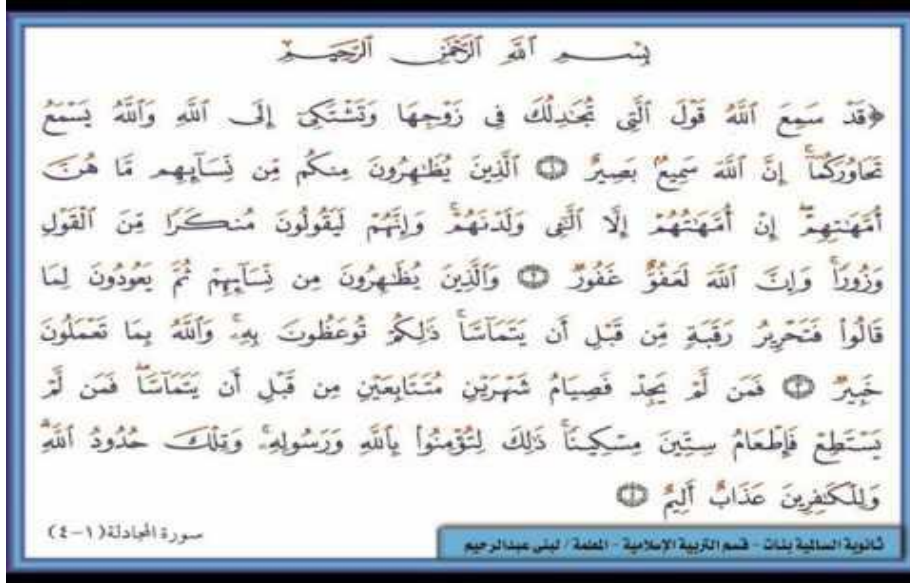 بِسْمِ ٱللَّهِ ٱلرَّحْمَٰنِ ٱلرَّحِيمِ
﴿قَدْ سَمِعَ ٱللَّهُ قَوْلَ ٱلَّتِي تُجَٰدِلُكَ فِي زَوْجِهَا وَتَشْتَكِيٓ إِلَى ٱللَّهِ وَٱللَّهُ يَسْمَعُ
تَحَاوُرَكُمَآۚ إِنَّ ٱللَّهَ سَمِيعٌۢ بَصِيرٌ ۝١ ٱلَّذِينَ يُظَٰهِرُونَ مِنكُم مِّن نِّسَآئِهِم مَّا هُنَّ
أُمَّهَٰتِهِمْۖ إِنْ أُمَّهَٰتُهُمْ إِلَّا ٱلَّٰٓـِٔي وَلَدْنَهُمْۚ وَإِنَّهُمْ لَيَقُولُونَ مُنكَرًا مِّنَ ٱلْقَوْلِ
وَزُورًاۚ وَإِنَّ ٱللَّهَ لَعَفُوٌّ غَفُورٌ ۝٢ وَٱلَّذِينَ يُظَٰهِرُونَ مِن نِّسَآئِهِمْ ثُمَّ يَعُودُونَ لِمَا
قَالُوا۟ فَتَحْرِيرُ رَقَبَةٍ مِّن قَبْلِ أَن يَتَمَآسَّاۚ ذَٰلِكُمْ تُوعَظُونَ بِهِۦۚ وَٱللَّهُ بِمَا تَعْمَلُونَ
خَبِيرٌ ۝٣ فَمَن لَّمْ يَجِدْ فَصِيَامُ شَهْرَيْنِ مُتَتَابِعَيْنِ مِن قَبْلِ أَن يَتَمَآسَّاۖ فَمَن لَّمْ
يَسْتَطِعْ فَإِطْعَامُ سِتِّينَ مِسْكِينًاۚ ذَٰلِكَ لِتُؤْمِنُوا۟ بِٱللَّهِ وَرَسُولِهِۦۚ وَتِلْكَ حُدُودُ ٱللَّهِۗ
وَلِلْكَٰفِرِينَ عَذَابٌ أَلِيمٌ ۝٤
سورة المجادلة(١-٤)
ثانوية السالمية بنات - قسم التربية الإسلامية - المعلمة / لبنى عبدالرحيم